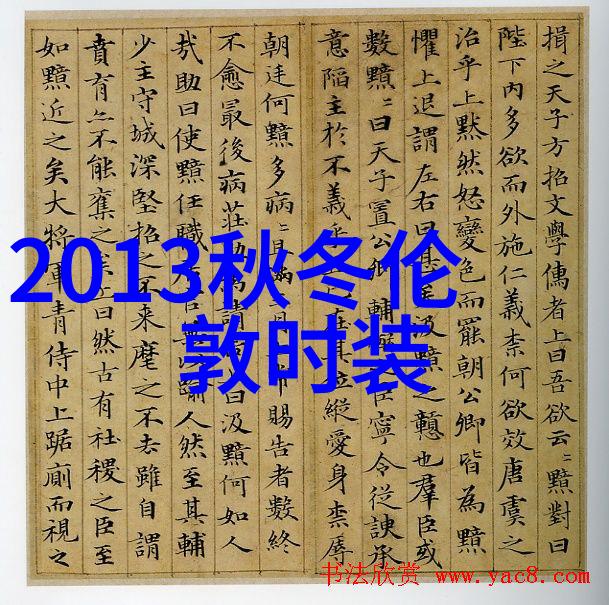 揖之天子方招文學儒者上曰吾欲云〻黯對曰
陛下内多欲而外施仁義柰何欲效唐虞之
治乎上默然怒變色而罷朝公卿皆為黯
懼上退謂左右曰甚矣汲黯之戇也羣臣或
數黯〻曰天子置公卿輔臣寧令從諛承
意陷主於不義乎且在其位縱愛身柰辱
朝廷何黯多病〻且滿三月常賜告者數終
不愈最後病莊助為請告曰汲黯何如人
哉助曰使黯任職居官無以踰人然至其輔
少主守城深堅招之不来麾之不去雖自謂
賁育亦不能奪之矣上曰然古有社稷之臣至
如黯近之矣大將軍青侍中上踞廁而視之
2013秋冬伦
敦时装
书法欣赏 www.yac8.com